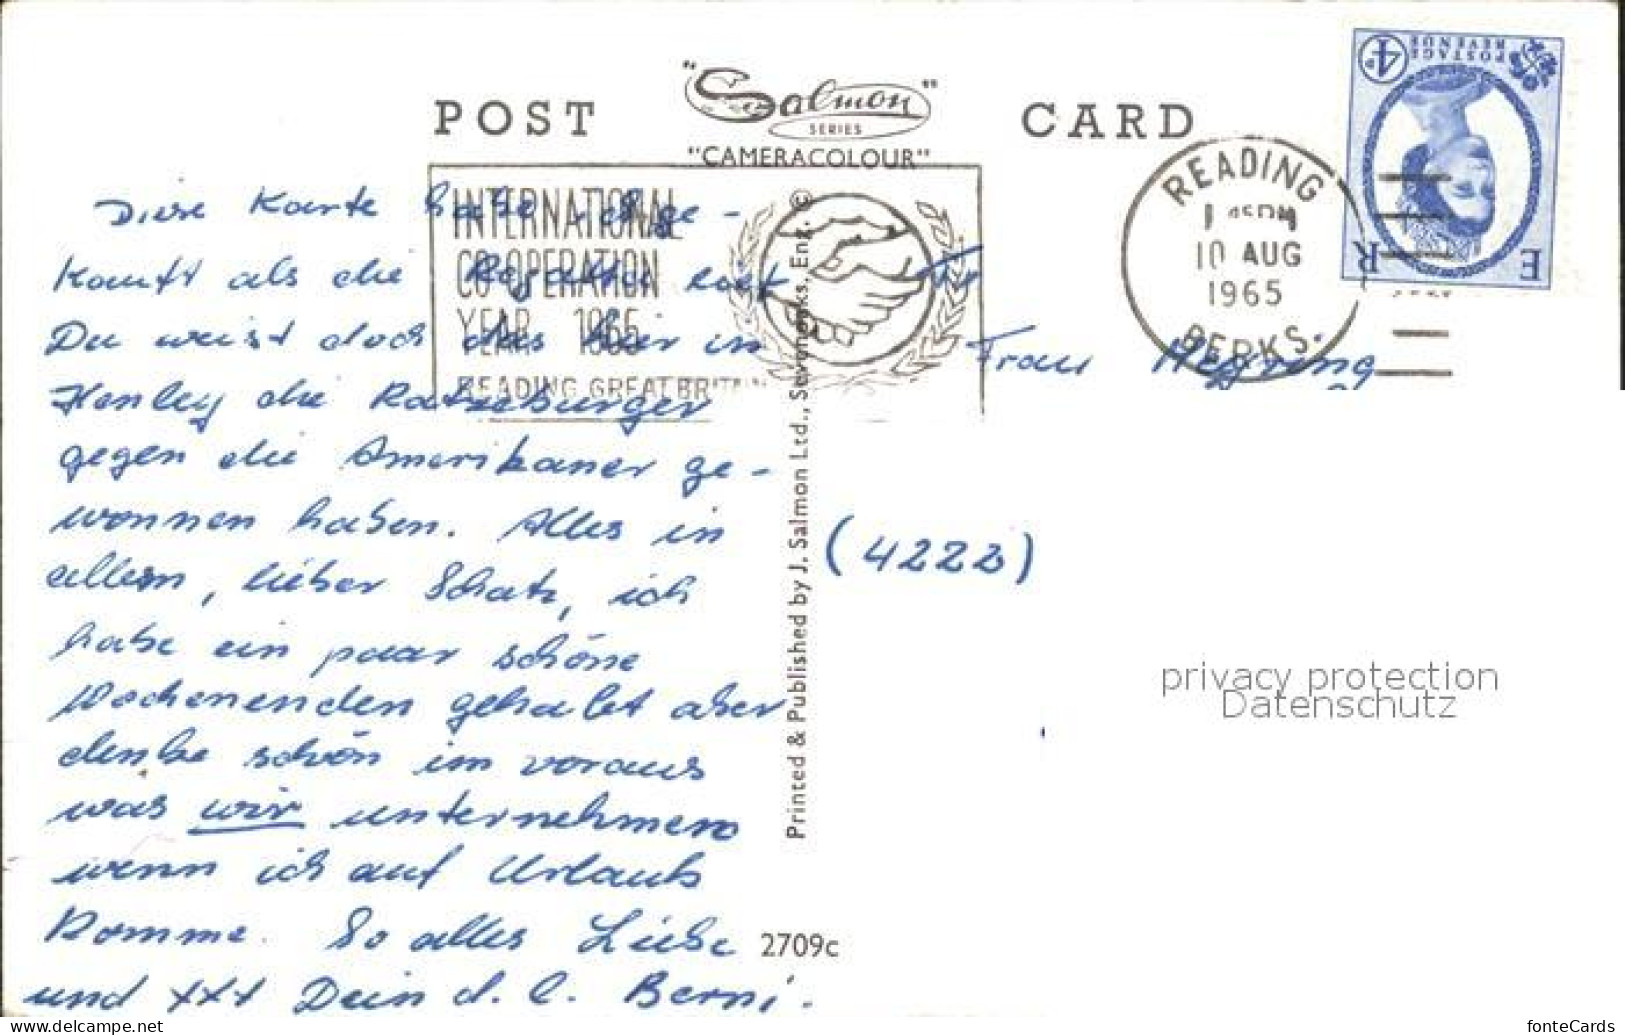 POST CARD
"Salmon"
SERIES
"CAMERACOLOUR"
POSTAGE
REVENUE
4D
E R
INTERNATIONAL
CO-OPERATION
YEAR 1965
READING GREAT BRITAIN
READING
10 AUG
1965
BERKS.
Diese Karte habe ich ge-
kauft als die Regatta
Du weist doch das hier in
Henley die Ratzeburger
gegen die Amerikaner ge-
wonnen haben. Alles in
allem, lieber Schatz, ich
habe ein paar schöne
Wochenenden gehabt aber
denke schön im voraus
was wir unternehmen
wenn ich auf Urlaub
komme. So alles Liebe
und xxx Dein d. l. Berni.
Frau
(4222)
Printed & Published by J. Salmon Ltd., Sevenoaks, Eng. ©
2709c
privacy protection
Datenschutz
fonteCards
www.delcampe.net